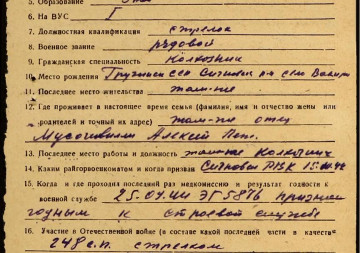 5. Образование
6. На ВУС I
7. Должностная квалификация стрелок
8. Военное звание рядовой
9. Гражданская специальность колхозник
10. Место рождения Грузинск ССР
11. Последнее место жительства там-же
12. Где проживает в настоящее время семья (фамилия, имя и отчество жены или
родителей и точный их адрес) там-же отец
Алексей
13. Последнее место работы и должность колхозник
14. Каким райгорвоенкоматом и когда призван РВК
15. Когда и где проходил последний раз медкомиссию и результат годности к
военной службе 25.04.44 ЭГ 5876 признан
годным к строевой службе
16. Участие в Отечественной войне (в составе какой последней части и в качестве
248 с.п. стрелком